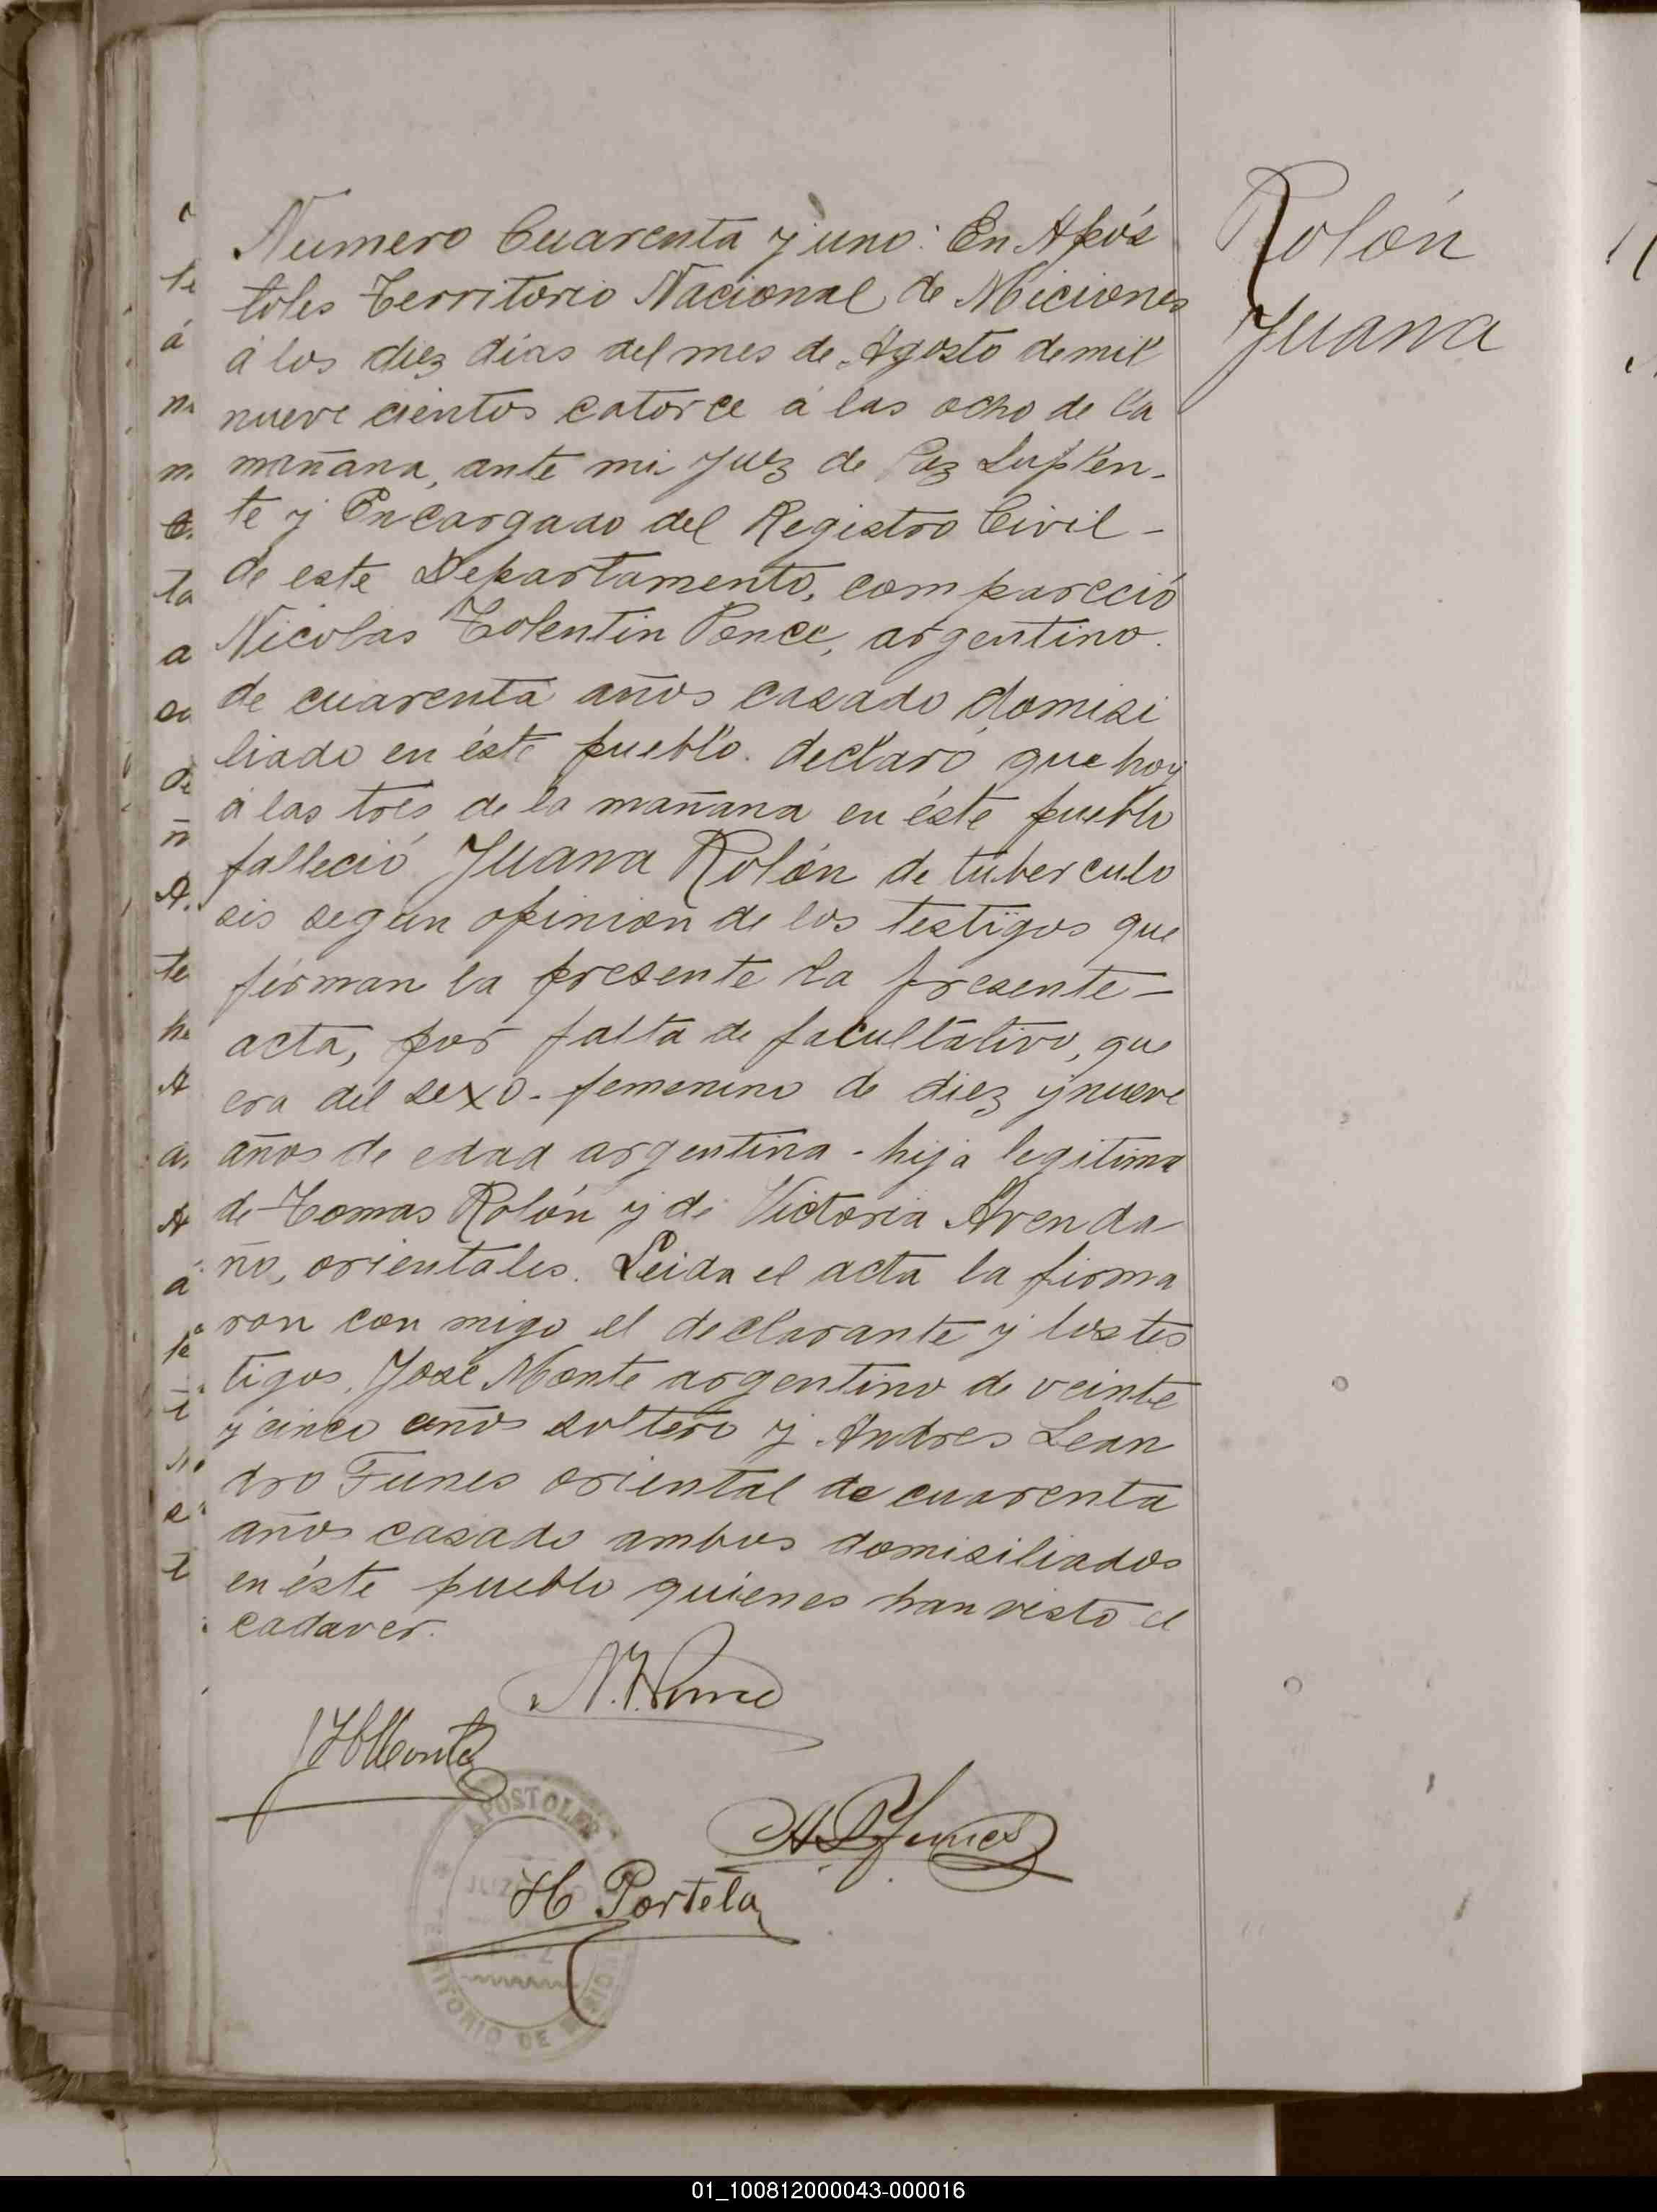 Numero Cuarenta y uno: En Após
toles Territorio Nacional de Miciones
á los diez dias del mes de Agosto de mil
nueve cientos catorce á las ocho de la
mañana, ante mi Juez de Paz Suplen-
te y Encargado del Registro Civil-
de este Departamento, compareció
Nicolas Tolentin Ponce, argentino.
de cuarenta años casado domisi
liado en éste pueblo. declaró que hoy
á las tres de la mañana en éste pueblo
falleció Juana Rolón de tuberculo
sis segun opinion de los testigos que
firman la presente la presente-
acta, por falta de facultativo, que
era del sexo-femenino de diez y nueve
años de edad argentina-hija legitima
de Tomas Rolón y de Victoria Avenda
ño, orientales. Leida el acta la firma
ron con migo el declarante y los tes
tigos, José Monte argentino de veinte
y cinco años soltero y Andres Lean
dro Funes oriental de cuarenta
años casado ambos domisiliados
en éste pueblo quienes han visto el
cadaver.
Rolón
Juana
N. T. Ponce
Monte
A L Funes
APOSTOLES
H Portela
TERRITORIO DE
01_100812000043-000016